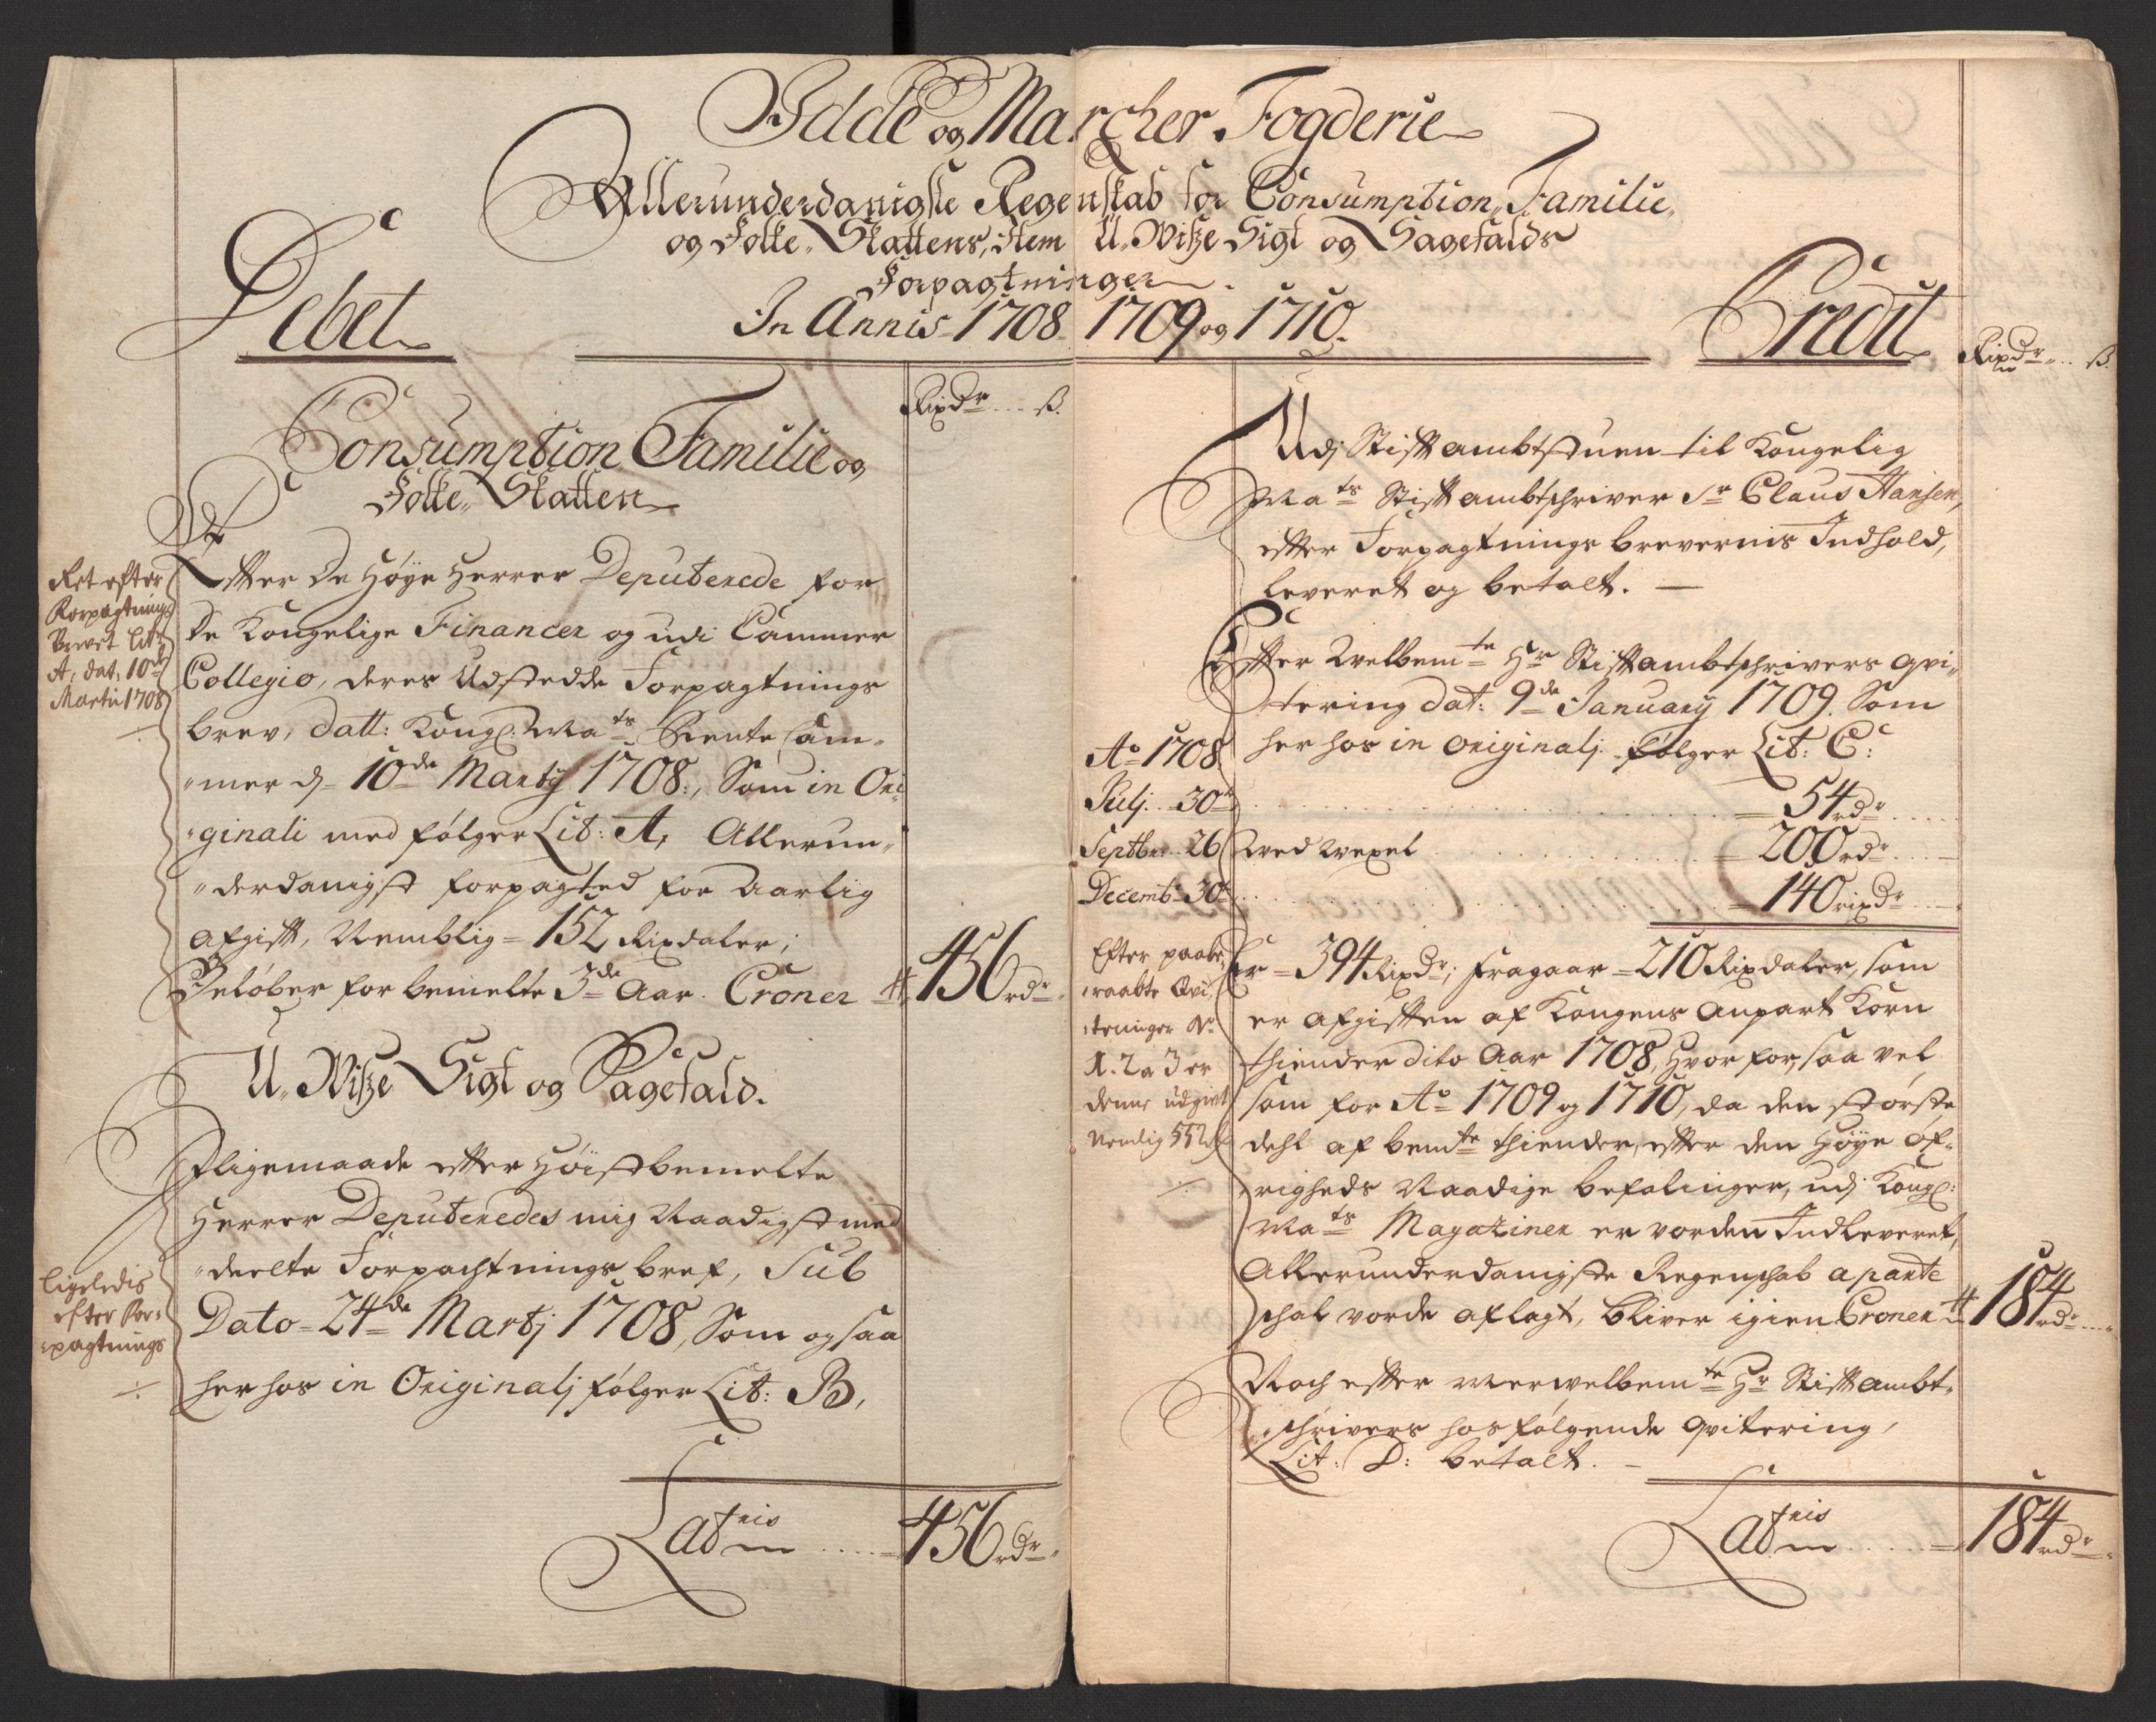 Idde og Marcher Fogderie
Allerunderdanigste Regenskab for Consumption, Familie,
og Folke-Skattens, Item U-Wiße Sigt og Sagefalds
Forpagtninger
In Annis 1708 1709 og 1710.
Debet
Rixdr ß.
Consumption Familie og
Folke-Skatten
Ret efter
Forpagtnings
Brevet Litr
A, dat. 10de
Martii 1708
Efter De Høye Herrer Deputerede for
De Kongelige Financer og udi Cammer
Collegio, deres Udstedde Forpagtnings
brev, datt: Kongl: Mats Rente Cam-
mer d. 10de Martij 1708, Som in Ori-
ginali med følger Lit: A, Allerun-
derdanigst forpagted for aarlig
afgift, Nemblig 152 Rixdaler;
Beløber for bemelte 3de Aar. Croner 456 rdr
U-Wiße Sigt og Sagefald.
Ligemaade efter Høistbemelte
Herrer Deputeredes mig Naadigst med
deelte Forpachtnings bref, Sub
Dato 24de Martj 1708, Som og saa
her hos in Originalj følger Lit: B,
Ligeledis
efter For-
pagtnings
Latris 456 rdr
Credit
Rixdr ß.
Udj Stiftambtstuen til Kongelig
Mats Stiftambtschriver Sr Claus Hansen,
efter Forpagtnings brevernis Indhold,
leveret og betalt.
Efter Welbemte Hr Stiftambtschrivers qvi-
tering dat: 9de January 1709. Som
her hos in originalj følger Lit: C:
Ao 1708
Julj. 30 54 rdr
Septbr: 26 Med Wexel 200 rdr
Decembr 30 140 rixdr
Efter paabe-
raabte Qvi-
teringer No
1. 2 a 3 er
denne udgivt
Nemlig 552 rd
Er 394 Rixdr; Fragaar 210 Rixdaler, som
er afgiften af Kongens anpart Korn
thiender dito Aar 1708, Hvor for, saa vel
som for Ao 1709 og 1710, da den største
dehl af bemte thiender, efter den Høye Øf-
righeds Naadige befalinger, udj Kongl:
Mats Magaziner er vorden Indleveret,
Allerunderdanigste Regenschab aparte
schal vorde aflagt, bliver igien Croner 184 rdr
Noch efter merwelbemte Hr Stiftambt-
schrivers hosfølgende qvitering,
Lit: D: betalt.
Latris 184 rdr